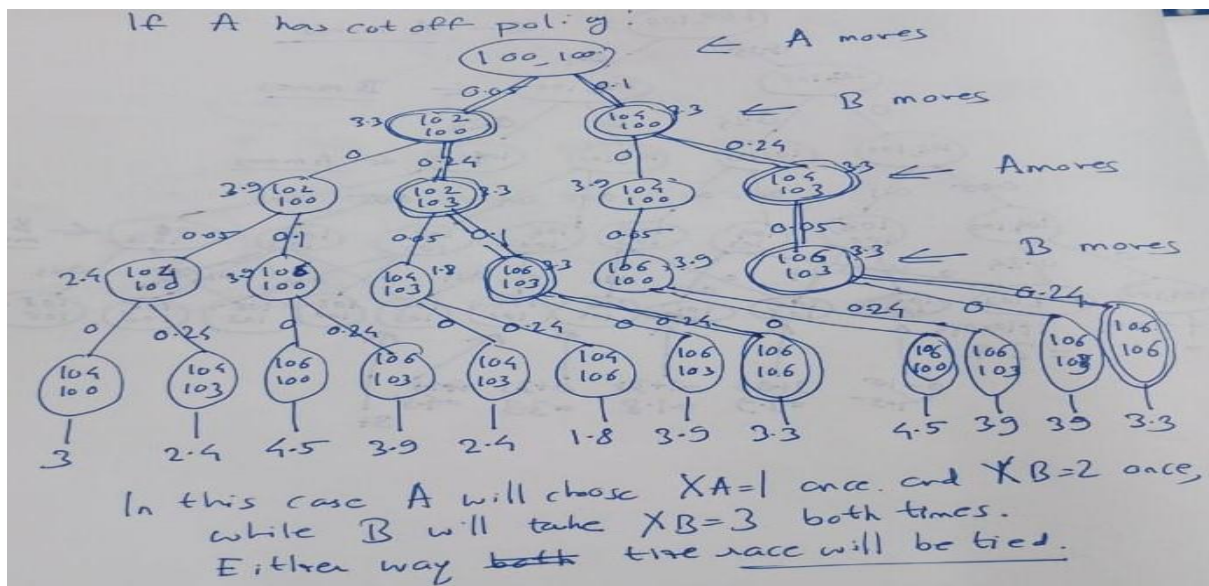 If A has cut off policy:
100_100 ← A moves
0.05 0.1
3.3 102 100 104 100 3.3 ← B moves
0 0.24 0 0.24
3.9 102 100 102 103 3.3 3.9 104 100 104 103 3.3 ← A moves
0.05 0.1 0.05 0.1 0.05 0.05
2.4 100 3.9 106 100 104 103 1.8 106 103 3.3 106 100 3.9 106 103 3.3 ← B moves
0 0.24 0 0.24 0 0.24 0 0.24 0 0.24 0 0.24
104 100 104 103 106 100 106 103 104 103 104 106 106 103 106 106 106 100 106 103 106 106 106
3 2.4 4.5 3.9 2.4 1.8 3.9 3.3 4.5 39 39 3.3
In this case A will choose XA=1 once. and XB=2 once,
while B will take XB=3 both times.
Either way both the race will be tied.